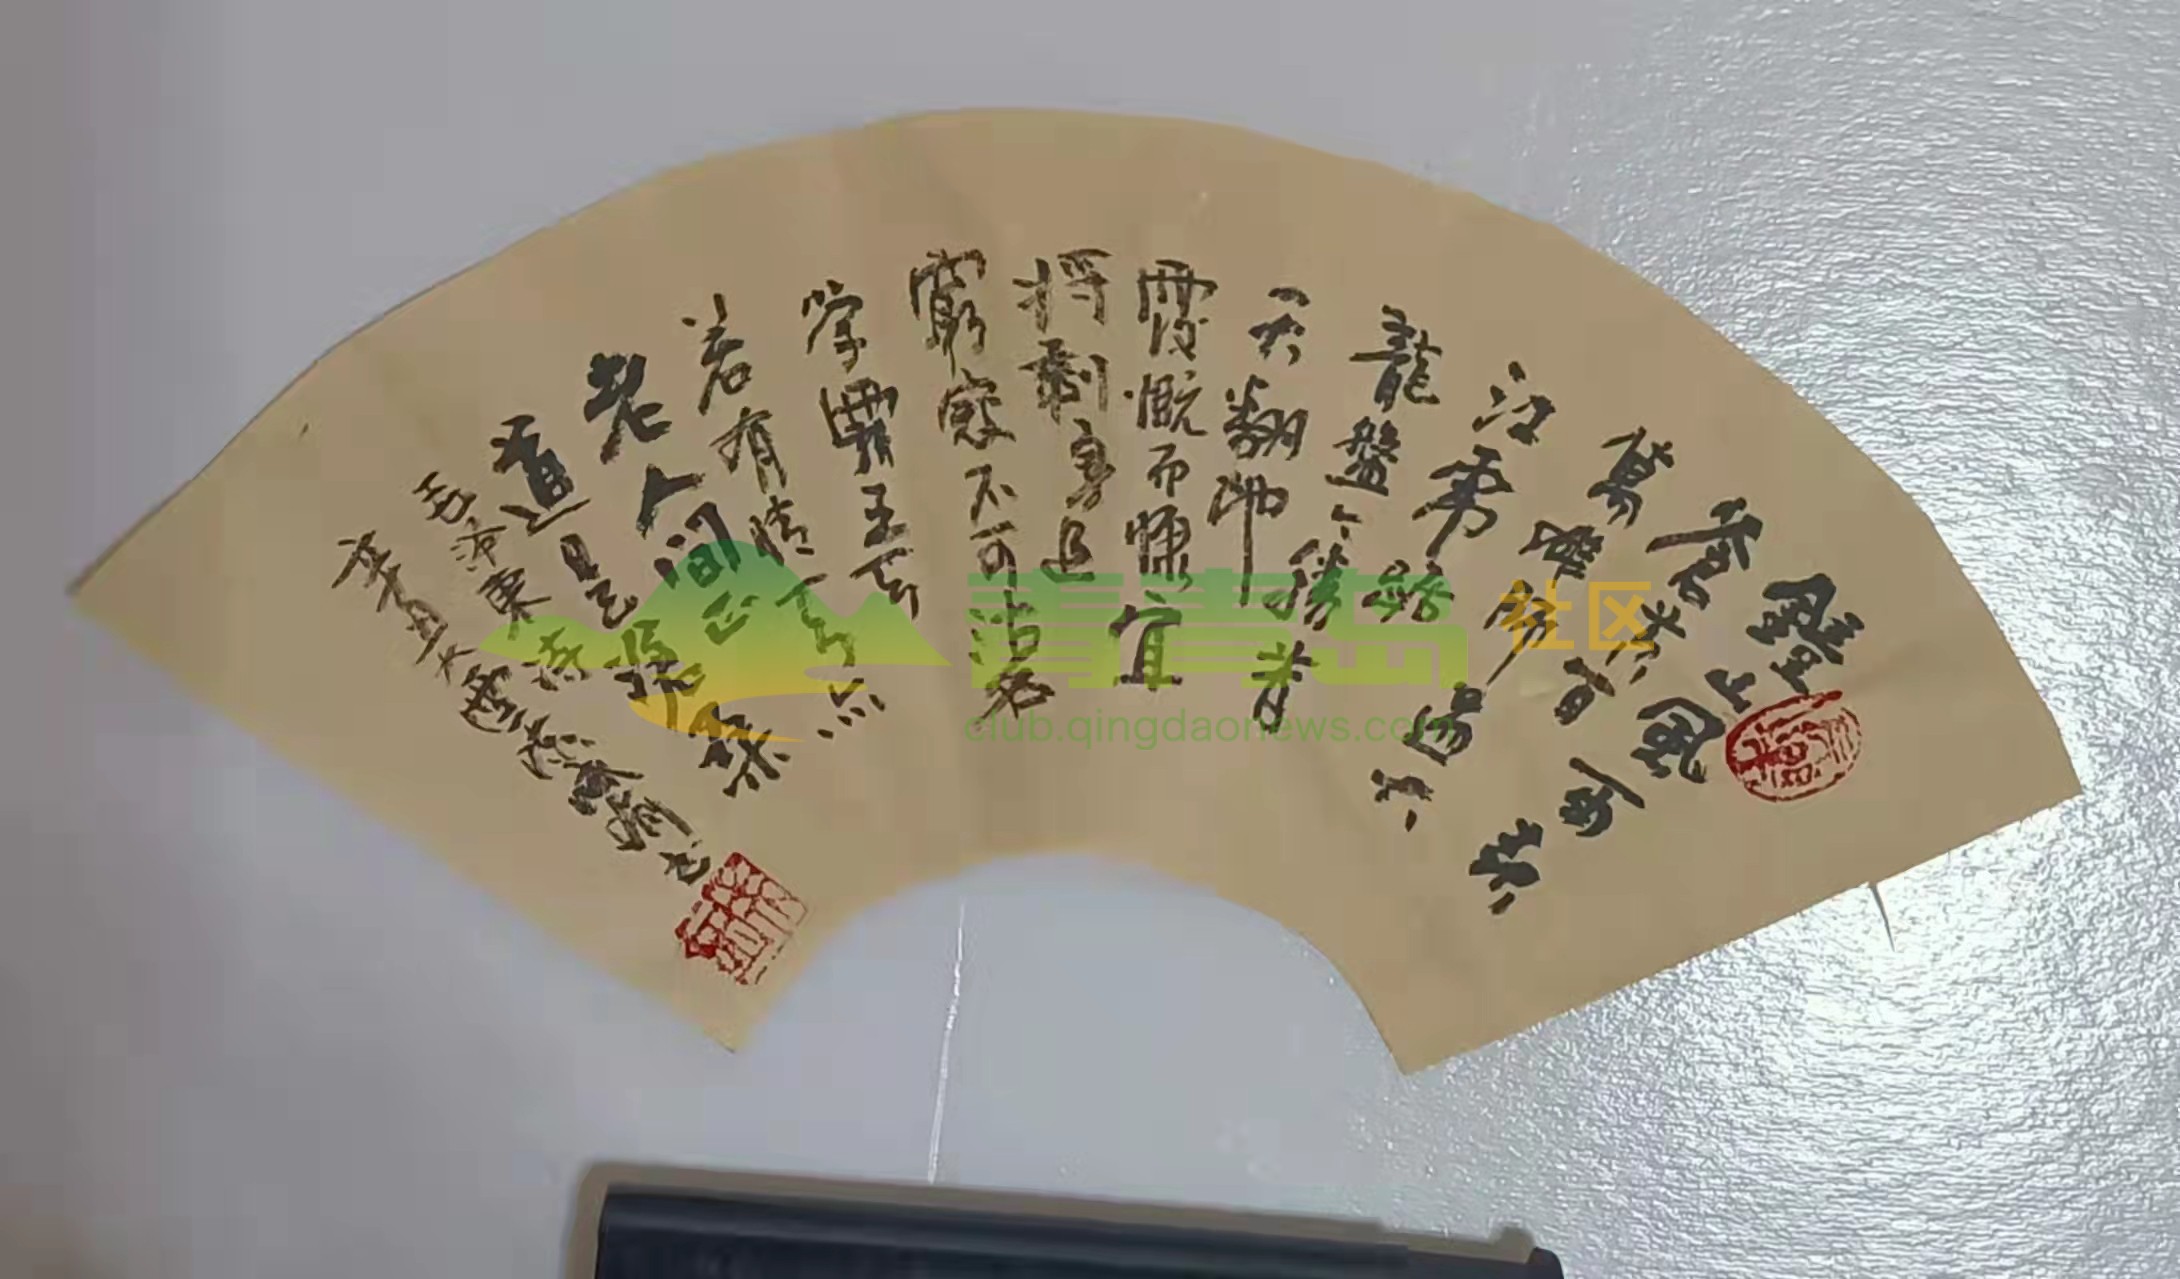 鐘山風雨起
蒼黃百
萬雄師過大
江虎踞
龍盤今勝昔
天翻地
覆慨而慷宜
將剩勇追
窮寇不可沽名
學霸王天
若有情天亦
老人間正
道是滄桑
毛澤東詩
辛丑大雪
青青岛社区
club.qingdaonews.com